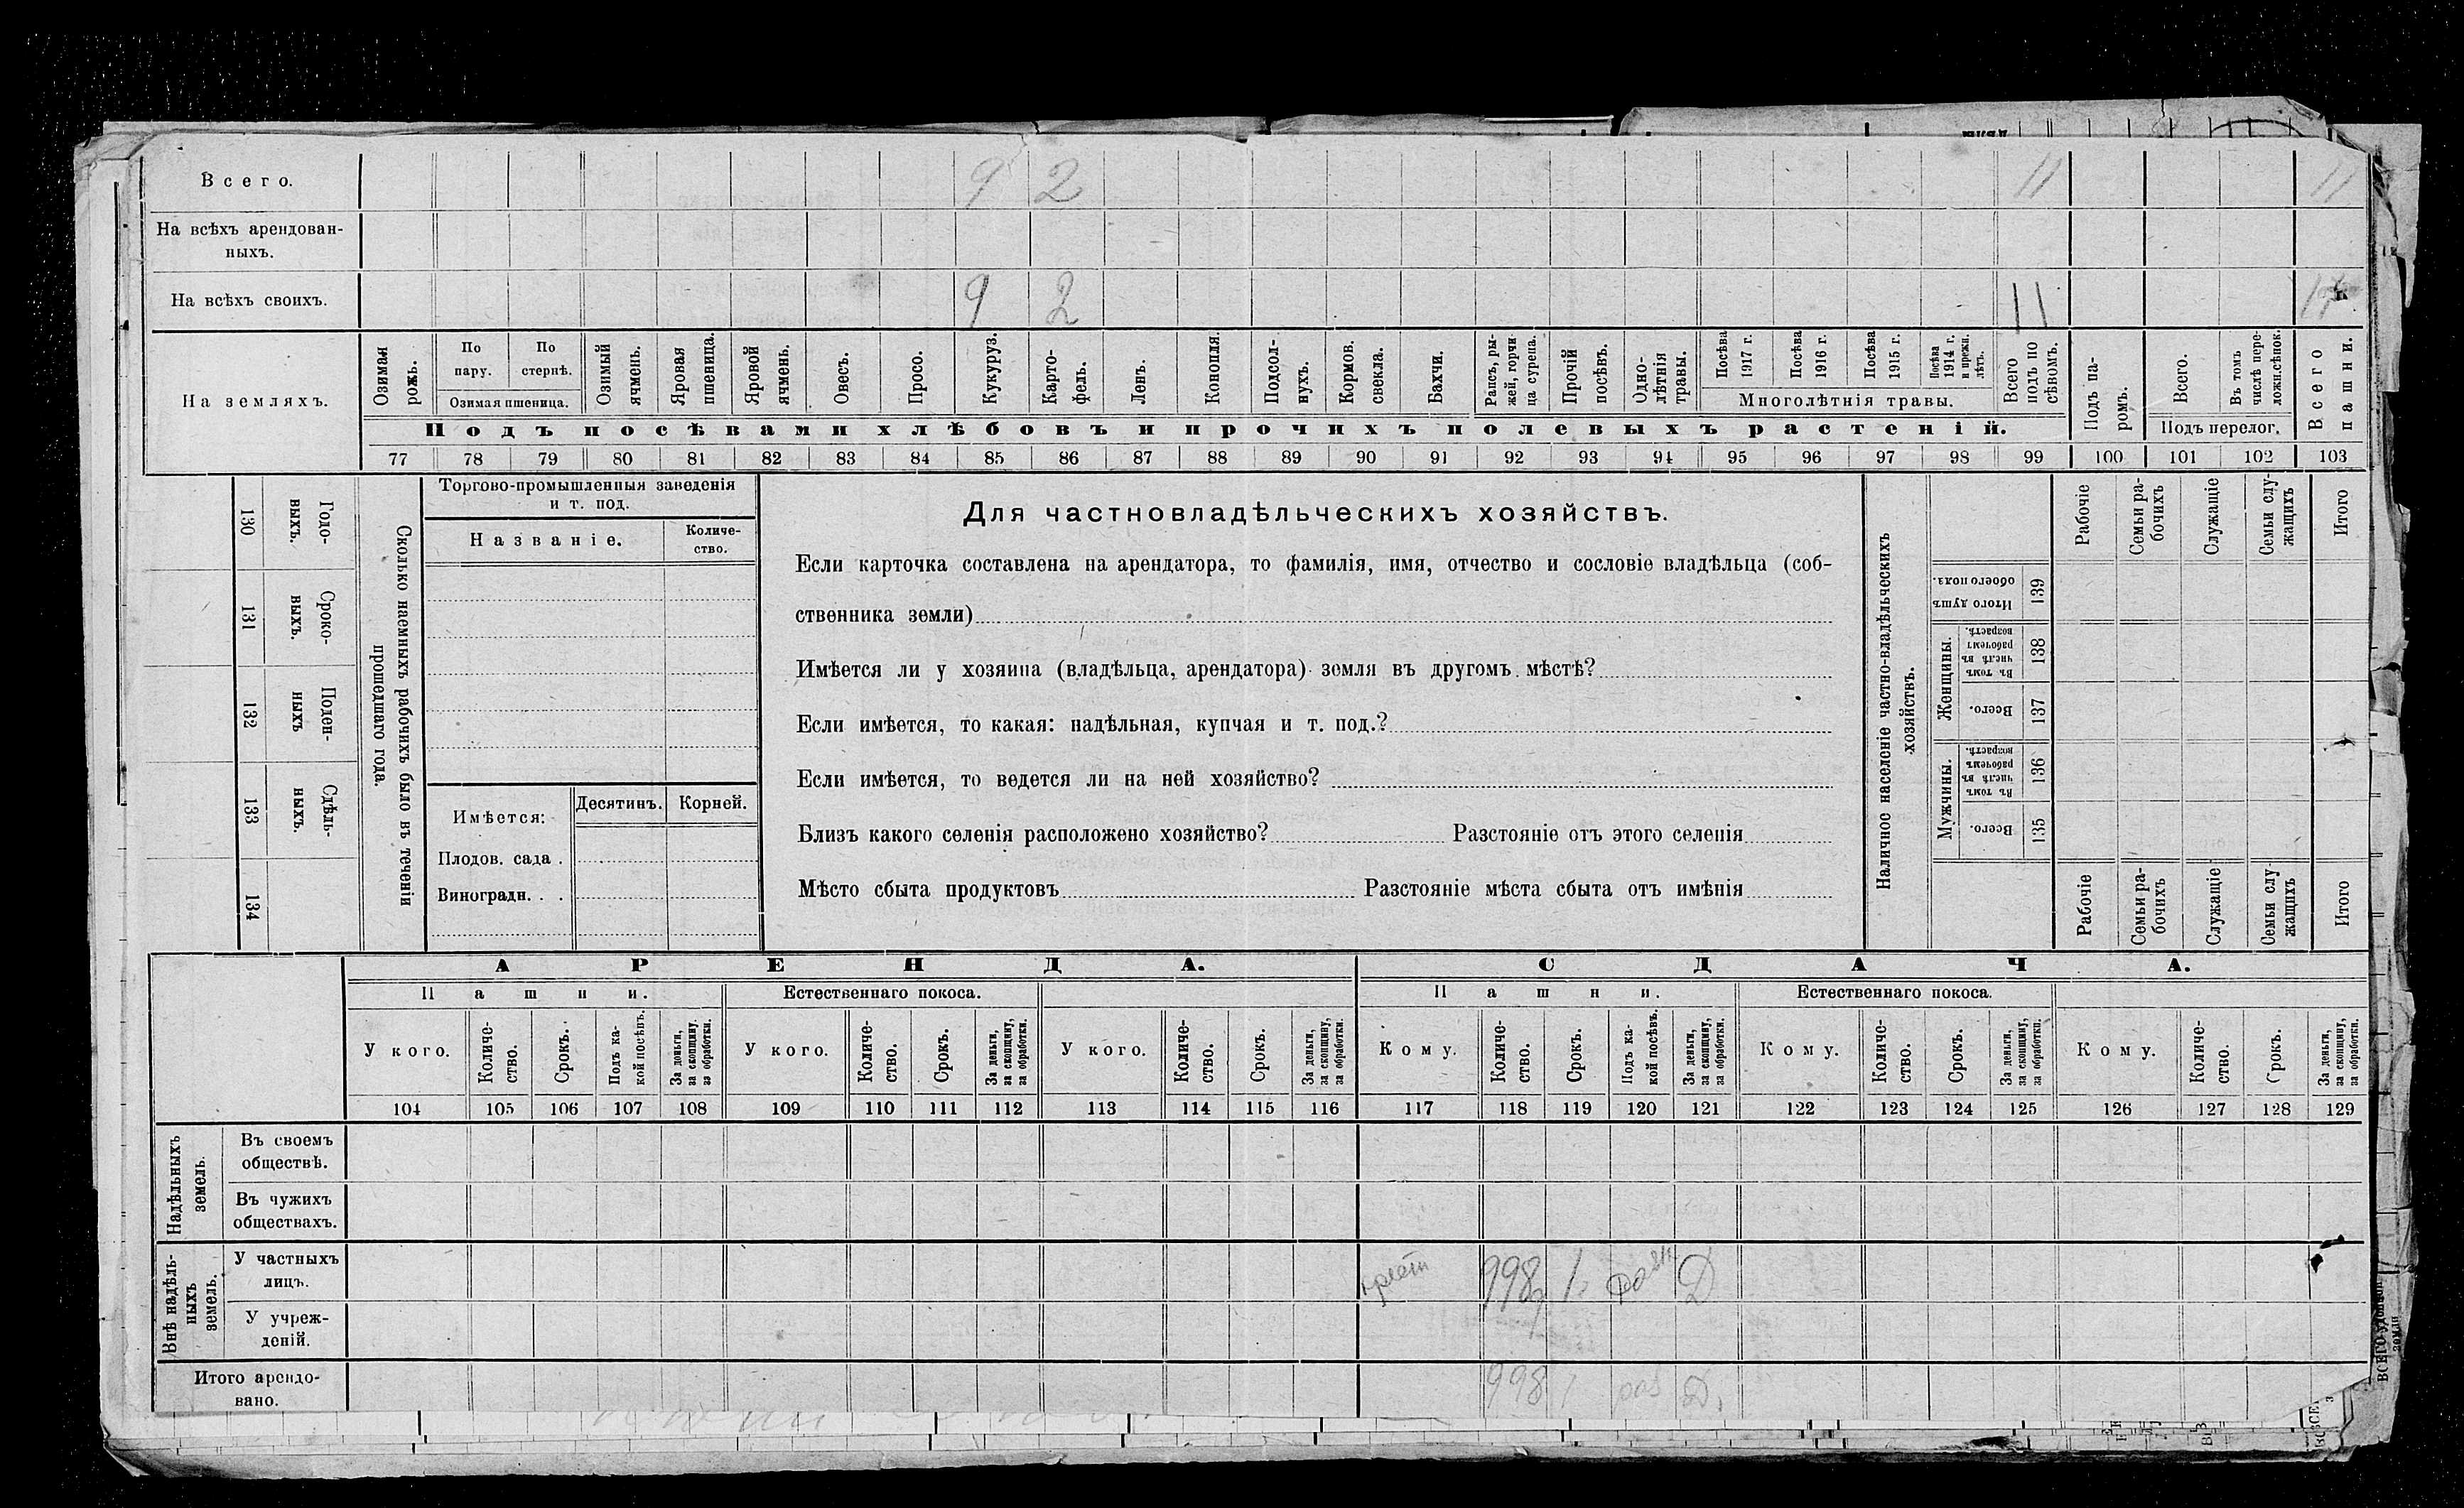 Всего. 9 2 11 11
На всѣхъ арендован-
ныхъ.
На всѣхъ своихъ. 9 2 11
На земляхъ.
Озимая рожь.
По пару.
По стернѣ.
Озимая пшеница.
Озимый ячмень.
Яровая пшеница.
Яровой ячмень.
Овесъ.
Просо.
Кукуруз.
Карто-
фель.
Ленъ.
Конопля.
Подсол-
нухъ.
Кормов. свекла.
Бахчи.
Рапсъ, ры-
жей, горчи-
ца сурепа.
Прочій посѣвъ.
Одно-
лѣтнія травы.
Посѣва 1917 г.
Посѣва 1916 г.
Посѣва 1915 г.
Посѣва 1914 г. и прежн. лѣтъ.
Многолѣтнія травы.
Всего подъ по
сѣвомъ.
Подъ посѣвами хлѣбовъ и прочихъ полевыхъ растеній.
Подъ па-
ромъ.
Всего.
Въ томъ числѣ пере-
ложн.сѣнок.
Подъ перелог.
Всего пашни.
77 78 79 80 81 82 83 84 85 86 87 88 89 90 91 92 93 94 95 96 97 98 99 100 101 102 103
Годо-
выхъ.
130
Сроко-
выхъ.
131
Поден-
ныхъ
132
Сдѣль-
ныхъ.
133
134
Сколько наемныхъ рабочихъ было въ теченіи
прошедшаго года.
Торгово-промышленныя заведенія
и т. под.
Названіе.
Количе-
ство.
Имѣется:
Десятинъ.
Корней.
Плодов. сада .
Виноградн. . .
Для частновладѣльческихъ хозяйствъ.
Если карточка составлена на арендатора, то фамилія, имя, отчество и сословіе владѣльца (соб-
ственника земли)
Имѣется ли у хозяина (владѣльца, арендатора) земля въ другомъ мѣстѣ?
Если имѣется, то какая: надѣльная, купчая и т. под.?
Если имѣется, то ведется ли на ней хозяйство?
Близъ какого селенія расположено хозяйство? Разстояніе отъ этого селенія
Мѣсто сбыта продуктовъ Разстояніе мѣста сбыта отъ имѣнія
Наличное населеніе частно-владѣльческихъ
хозяйствъ.
Рабочіе
Семьи ра-
бочихъ
Служащіе
Семьи слу-
жащихъ
Итого
Итого душъ обоего пола.
139
Женщины.
Въ томъ числѣ въ рабочемъ возрастѣ.
138
Всего.
137
Мужчины.
Въ томъ числѣ въ рабочемъ возрастѣ.
136
Всего.
135
Рабочіе
Семьи ра-
бочихъ
Служащіе
Семьи слу
жащихъ
Итого
АРЕНДА.
СДАЧА.
Пашни.
Естественнаго покоса.
Пашни.
Естественнаго покоса.
У кого.
Количе-
ство.
Срокъ.
Подъ ка-
кой посѣвъ.
За деньги, за скопщину, за обработки.
У кого.
Количе-
ство.
Срокъ.
За деньги, за скопщину, за обработки.
У кого.
Количе-
ство.
Срокъ.
За деньги, за скопщину, за обработки.
Кому.
Количе-
ство.
Срокъ.
Подъ ка-
кой посѣвъ.
За деньги, за скопщину, за обработки.
Кому.
Количе-
ство.
Срокъ.
За деньги, за скопщину, за обработки.
Кому.
Количе-
ство.
Срокъ.
За деньги, за скопщину, за обработки.
104 105 106 107 108 109 110 111 112 113 114 115 116 117 118 119 120 121 122 123 124 125 126 127 128 129
Надѣльныхъ
земель.
Въ своемъ
обществѣ.
Въ чужихъ
обществахъ.
Внѣ надѣль-
ныхъ
земель.
У частныхъ
лицъ.
крест 998 1 Д
У учреж-
деній.
Итого арендо-
вано.
998 1 раз Д.